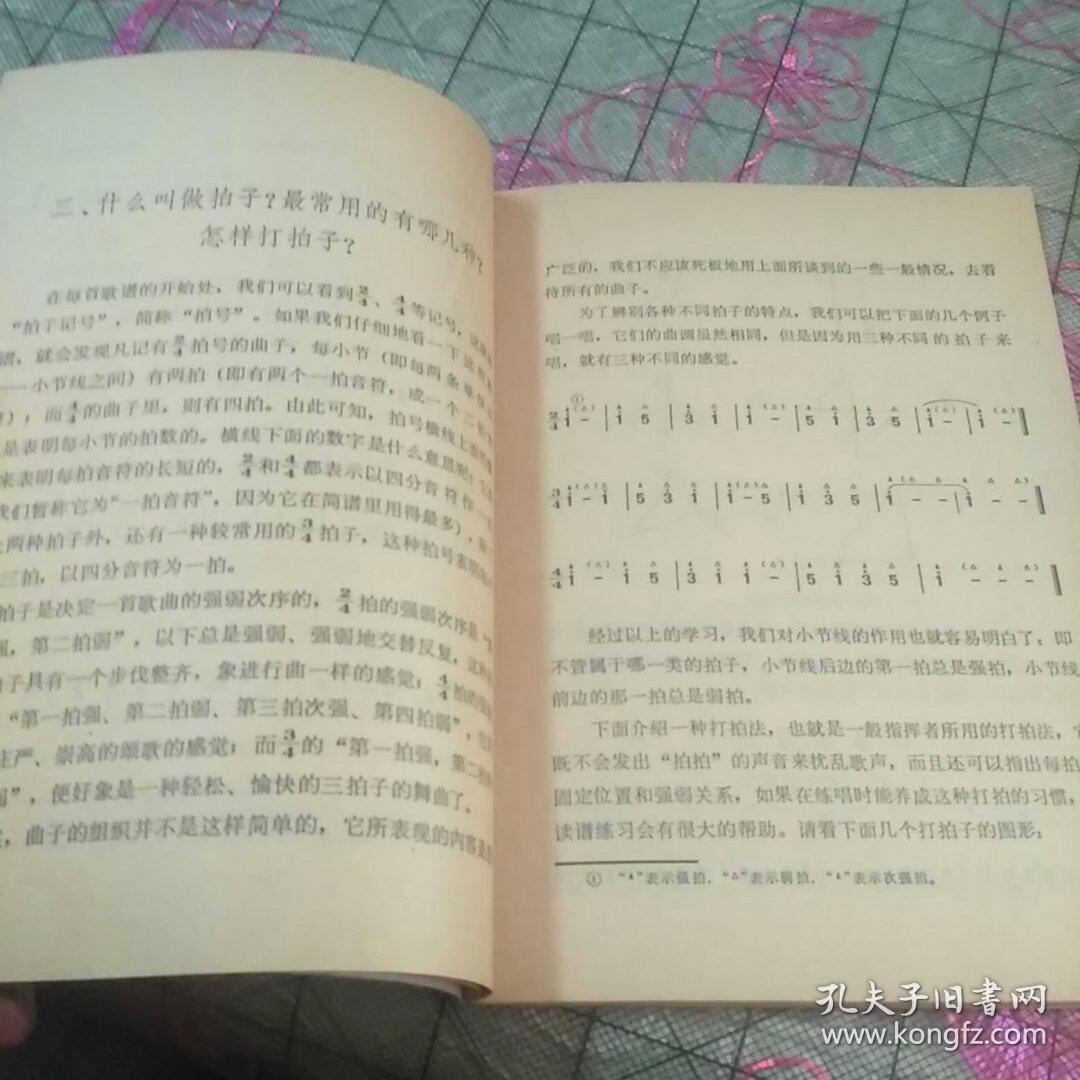 三、什么叫做拍子?最常用的有哪几种?
怎样打拍子?
在每首歌谱的开始处,我们可以看到2/4、4/4等记号,这就是
“拍子记号”,简称“拍号”。如果我们仔细地看一下这些
谱,就会发现凡记有2/4拍号的曲子,每小节(即每两条单纵线
——小节线之间)有两拍(即有两个一拍音符,或一个二拍音
符);而4/4的曲子里,则有四拍。由此可知,拍号横线上面的
是表明每小节的拍数的。横线下面的数字是什么意思呢?它是
来表明每拍音符的长短的,2/4和4/4都表示以四分音符作一
我们暂称它为“一拍音符”,因为它在简谱里用得最多)。除了
上两种拍子外,还有一种较常用的3/4拍子,这种拍号表明每小
三拍,以四分音符为一拍。
拍子是决定一首歌曲的强弱次序的,2/4拍的强弱次序是“
强,第二拍弱”,以下总是强弱、强弱地交替反复,这种
拍子具有一个步伐整齐,象进行曲一样的感觉;4/4拍的强弱
“第一拍强、第二拍弱、第三拍次强、第四拍弱”,它
庄严、崇高的颂歌的感觉;而3/4的“第一拍强,第二拍
弱”,便好象是一种轻松、愉快的三拍子的舞曲了。
,曲子的组织并不是这样简单的,它所表现的内容是
广泛的,我们不应该死板地用上面所谈到的一些一般情况,去看
待所有的曲子。
为了辨别各种不同拍子的特点,我们可以把下面的几个例子
唱一唱,它们的曲调虽然相同,但是因为用三种不同的拍子来
唱,就有三种不同的感觉。
①
2/4 1 - | 1 5 | 3 1 | 1 - | 5 1 | 3 5 | 1 - | 1 - ‖
3/4 1 - 1 | 5 3 1 | 1 - 5 | 1 3 5 | 1 - - | 1 - - ‖
4/4 1 - 1 5 | 3 1 1 - | 5 1 3 5 | 1 - - - ‖
经过以上的学习,我们对小节线的作用也就容易明白了:即
不管属于哪一类的拍子,小节线后边的第一拍总是强拍,小节线
前边的那一拍总是弱拍。
下面介绍一种打拍法,也就是一般指挥者所用的打拍法,它
既不会发出“拍拍”的声音来扰乱歌声,而且还可以指出每拍
固定位置和强弱关系,如果在练唱时能养成这种打拍的习惯,
读谱练习会有很大的帮助。请看下面几个打拍子的图形:
① “▲”表示强拍,“△”表示弱拍,“▲”表示次强拍。
孔夫子旧书网
www.kongfz.com